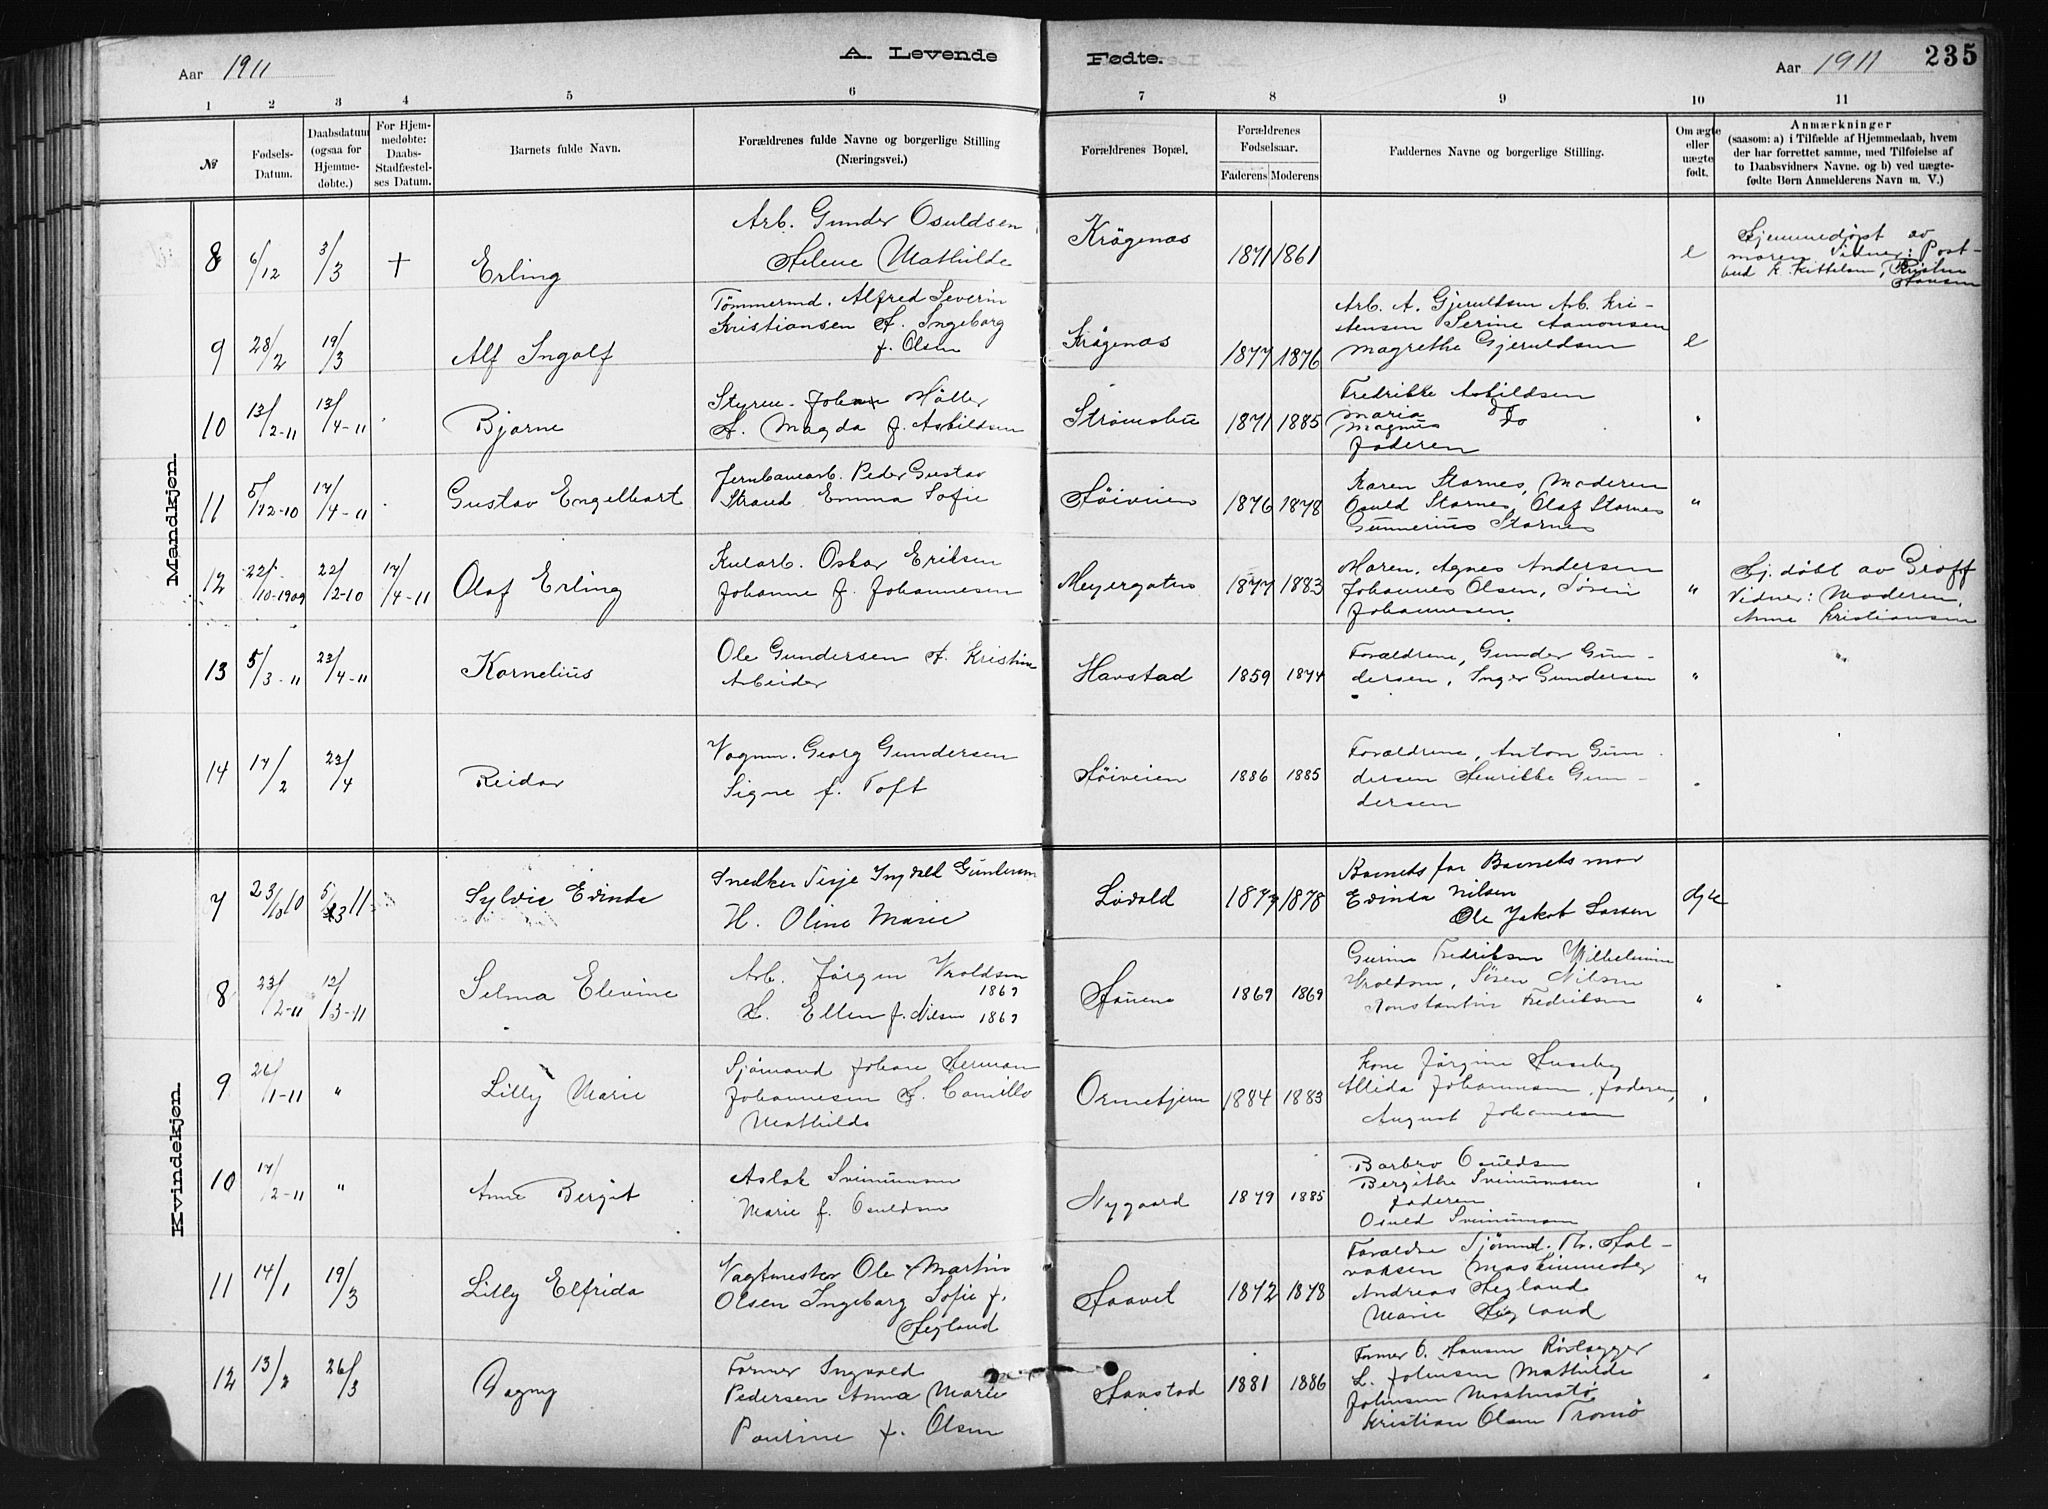 Aar 1911
A. Levende
Fødte.
Aar 1911
235
1 2 3 4 5 6 7 8 9 10 11
№
Fødsels-
Datum.
Daabsdatum
(ogsaa for
Hjemme-
døbte.)
For Hjem-
medøbte:
Daabs-
Stadfæstel-
ses Datum.
Barnets fulde Navn.
Forældrenes fulde Navne og borgerlige Stilling
(Næringsvei.)
Forældrenes Bopæl.
Forældrenes
Fødselsaar.
Faderens Moderens
Faddernes Navne og borgerlige Stilling.
Om ægte
eller
uægte
født.
Anmærkninger
(saasom: a) i Tilfælde af Hjemmedaab, hvem
der har forrettet samme, med Tilføielse af
to Daabsvidners Navne, og b) ved uægte-
fødte Børn Anmelderens Navn m. V.)
Mandkjøn.
8 6/12 3/3 + Erling
Arb. Gunder Osuldsen
Helene Mathilde
Krøgenæs 1871 1861 e
Hjemmedøpt av
moren Vidner: Post-
bud K. Kittelsen, Kristin
Hansen
9 28/2 19/3 Alf Ingolf
Tømmermd. Alfred Severin
Kristiansen H. Ingeborg
f. Olsen
Krøgenæs 1877 1876
Arb. A. Gjeruldsen Arb. Kri-
stensen Serine Aanonsen
Magrethe Gjeruldsen e
10 13/2-11 13/4-11 Bjarne
Styrm. Johan Møller
H. Magda f. Asbildsen
Strømsbu 1871 1885
Fredrikke Asbildsen
Maria do
Magnus do
Faderen "
11 5/12-10 17/4-11 Gustav Engelhart
Jernbanearb. Peder Gustav
Strand Emma Sofie
Høiveien 1876 1878
Karen Starnes, Moderen
Osuld Starnes, Olaf Starnes
Gunnerius Starnes "
12 22/10-1909 22/2-10 17/4-11 Olaf Erling
Kularb. Oskar Eriksen
Johanne f. Johannesen
Meyergaten 1877 1883
Maren, Agnes Andersen
Johannes Olsen, Søren
Johannesen. "
Hj.døbt av Groff
Vidner: Moderen,
Anne Kristiansen
13 5/3-11 23/4-11 Kornelius
Ole Gundersen H. Kristine
Arbeider
Havstad 1859 1874
Forældrene, Gunder Gun-
dersen, Inger Gundersen "
14 17/2 23/4 Reidar
Vognm. Georg Gundersen
Signe f. Toft
Høiveien 1886 1885
Forældrene, Anton Gun-
dersen Henrikke Gun-
dersen
Kvindekjøn.
7 23/10 10 5/3 11 Sylvie Evinda
Snedker Terje Ingvald Gundersen
H. Oline Marie
Løvold 1877 1878
Barnets far Barnets mor
Evinda Nilsen
Ole Jakob Larsen
8 23/2-11 12/3-11 Selma Elevine
Arb. Jørgen Vroldsen
1869
H. Ellen f. Nilsen 1869
Houene 1869 1869
Gurine Fredriksen Wilhelmine
Vroldsen, Søren Nilsen
Konstantin Fredriksen "
9 26/1-11 " Lilly Marie
Sjømand Johan Herman
Johannesen H. Camilla
Mathilde
Ormetjern 1884 1883
Kone Jørgine Huseby
Alida Johannesen, Faderen,
August Johannesen
10 17/2-11 " Anne Bergit
Aslak Sveinumsen
Marie f. Osuldsen
Nygaard 1879 1885
Barbro Osuldsen
Bergithe Sveinumsen
Faderen
Osuld Sveinumsen
11 14/1 19/3 Lilly Elfrida
Vagtmester Ole Martin
Olsen Ingeborg Sofie f.
Høgland
Haavet 1872 1878
Forældre Sjømd. Th. Hal-
vorsen Maskinmester
Andreas Høgland
Marie Høgland "
12 13/2 26/3 Dagny
Former Ingvald
Pedersen Anna Marie
Pauline f. Olsen
Havstad 1881 1886
Former O. Hansen Rørlægger
L. Johnsen Mathilde
Johnsen
Kristian Olsen Tromø